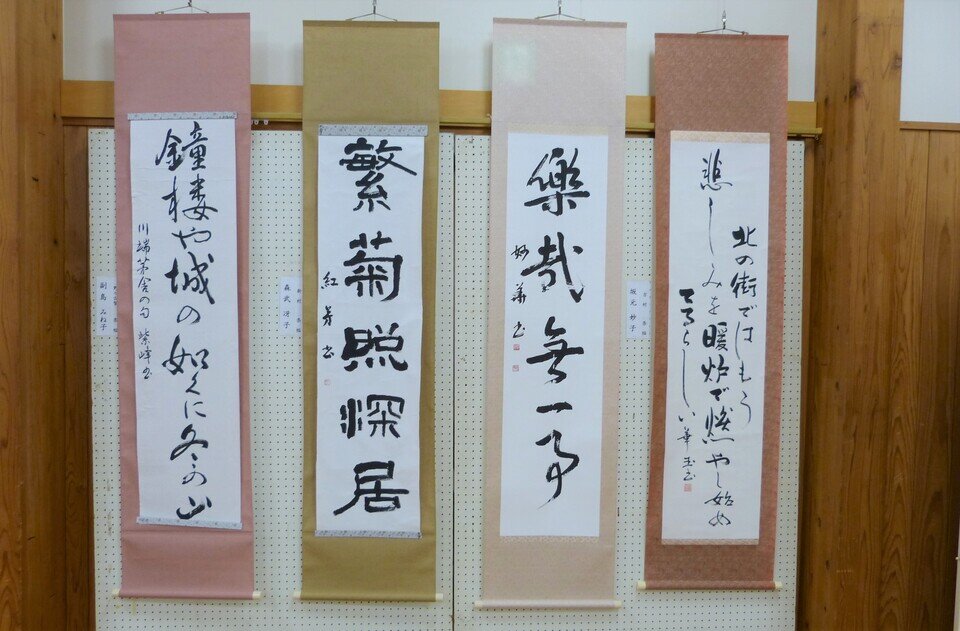 北の街ではもう
悲しみを暖炉で燃やし始め
てるらしい 華玉書
坂元 妙子
樂哉無一事
妙華書
繁菊照深居
紅芳書
森武 冴子
鐘楼や城の如くに冬の山
川端茅舎の句 紫峰書
副島 みね子